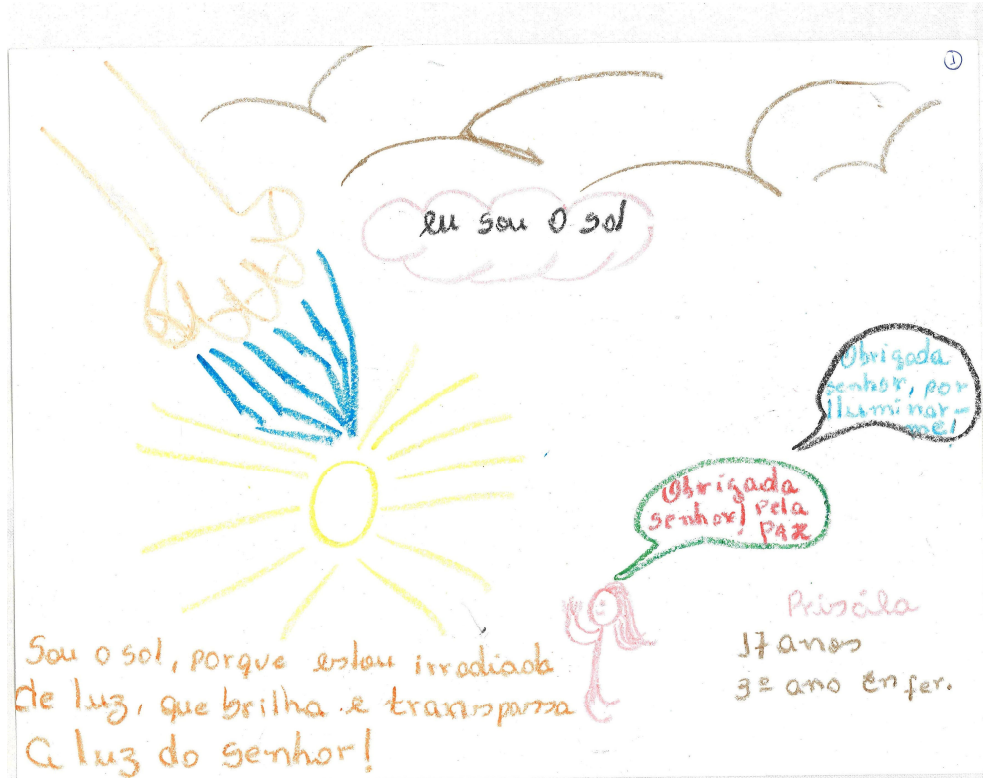 1
eu sou o sol
Obrigada
senhor, por
iluminar-
me!
Obrigada
senhor, pela
paz
Priscila
17 anos
3º ano Enfer.
Sou o sol, porque estou irradiada
de luz, que brilha e transpassa
a luz do senhor!